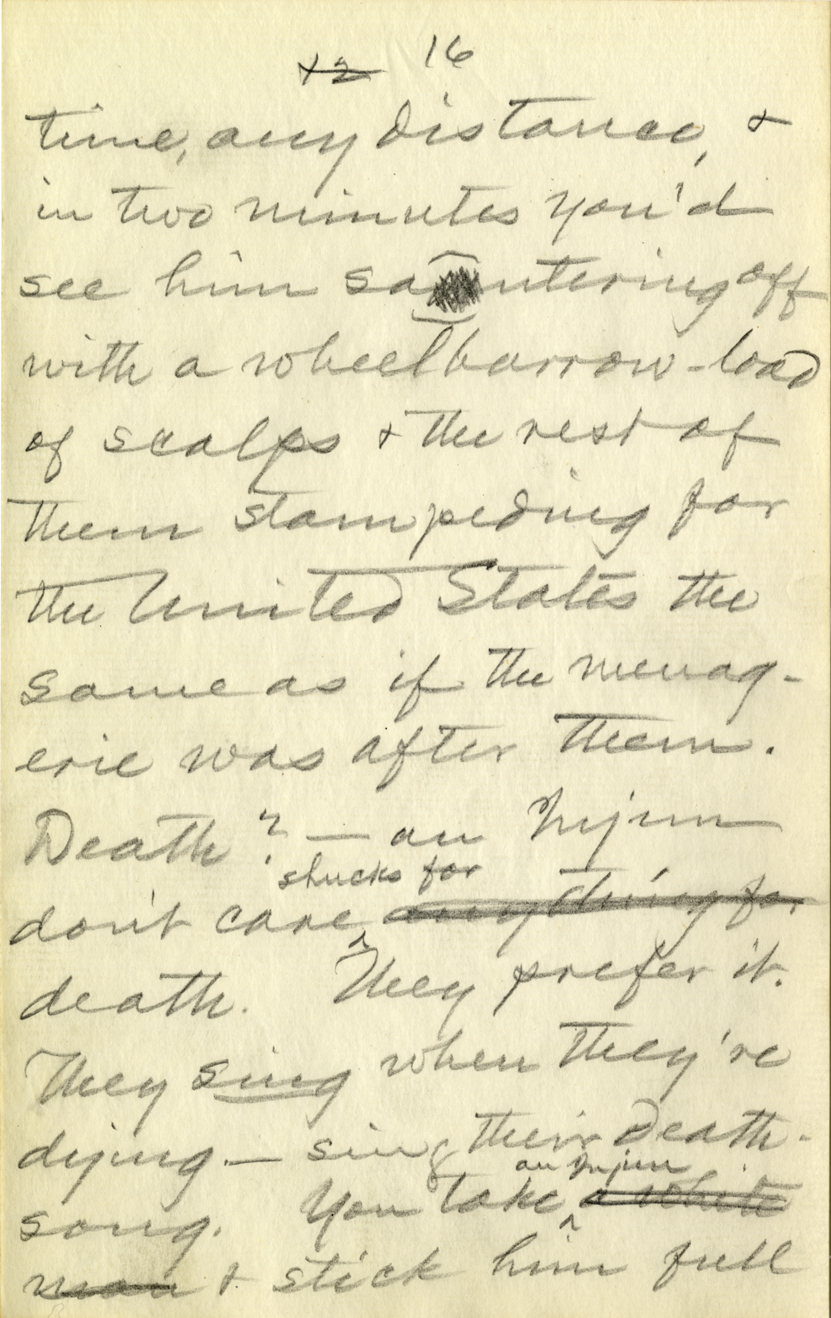 12 16
time, any distance, &
in two minutes you'd
see him sauntering off
with a wheelbarrow-load
of scalps & the rest of
them stampeding for
the United States the
same as if the menag-
erie was after them.
Death? — an Injun
shucks for
don't care anything for
death. They prefer it.
They sing when they're
dying — sing their death-
an Injun
song. You take a white
man & stick him full